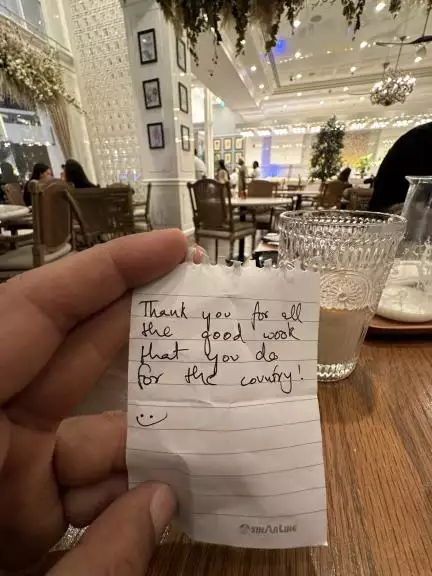 Thank you for all
the good work
that you do
for the country!
SINARLINE